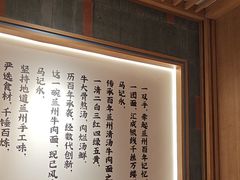 一双手，牵起兰州百年记忆
一团面，汇成银线千丝万缕
马记永，
传承百年兰州清汤牛肉面之
一清二白三红四绿五黄，
牛大骨熬汤，肉烂汤鲜，
历百年承袭，经数代创新，
这一碗兰州牛肉面，现已风
马记永，
坚持地道兰州手工味，
严选食材，千锤百炼，